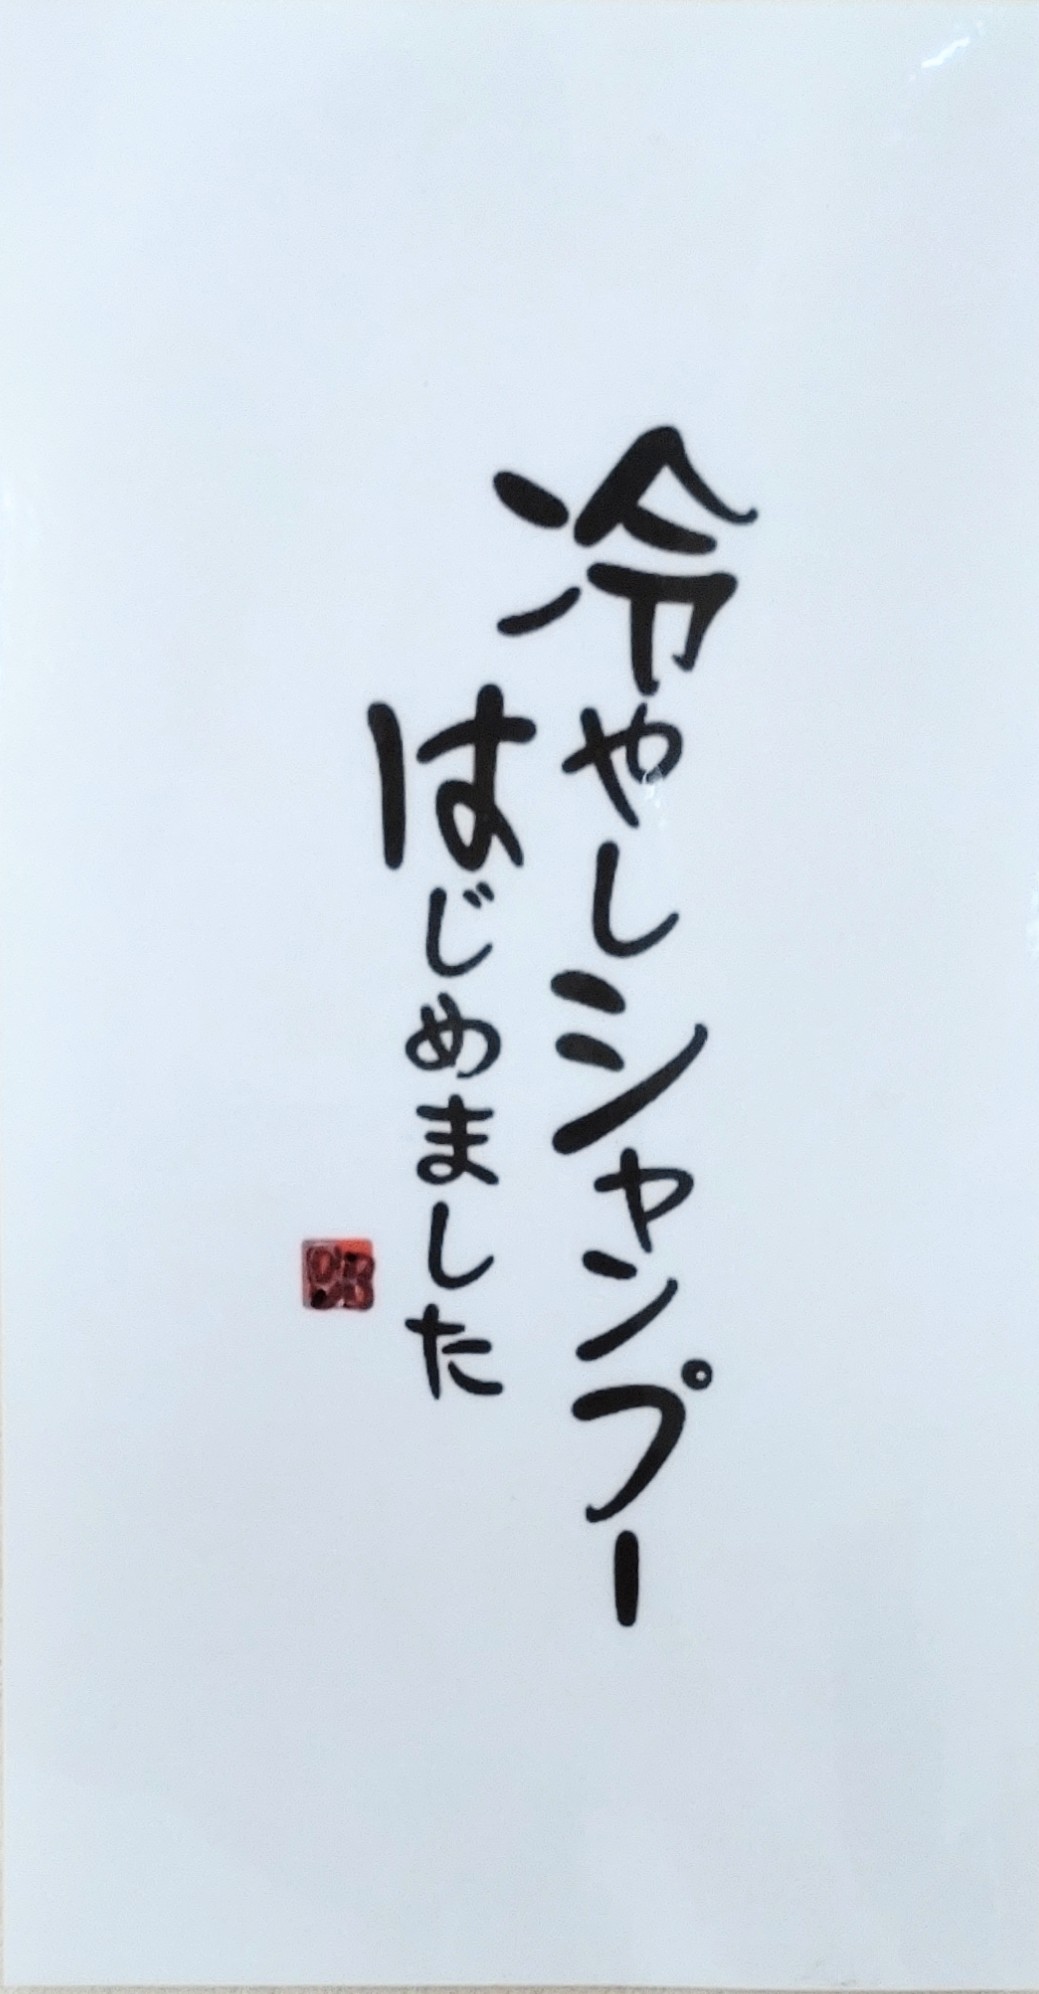 冷やしシャンプー
はじめました